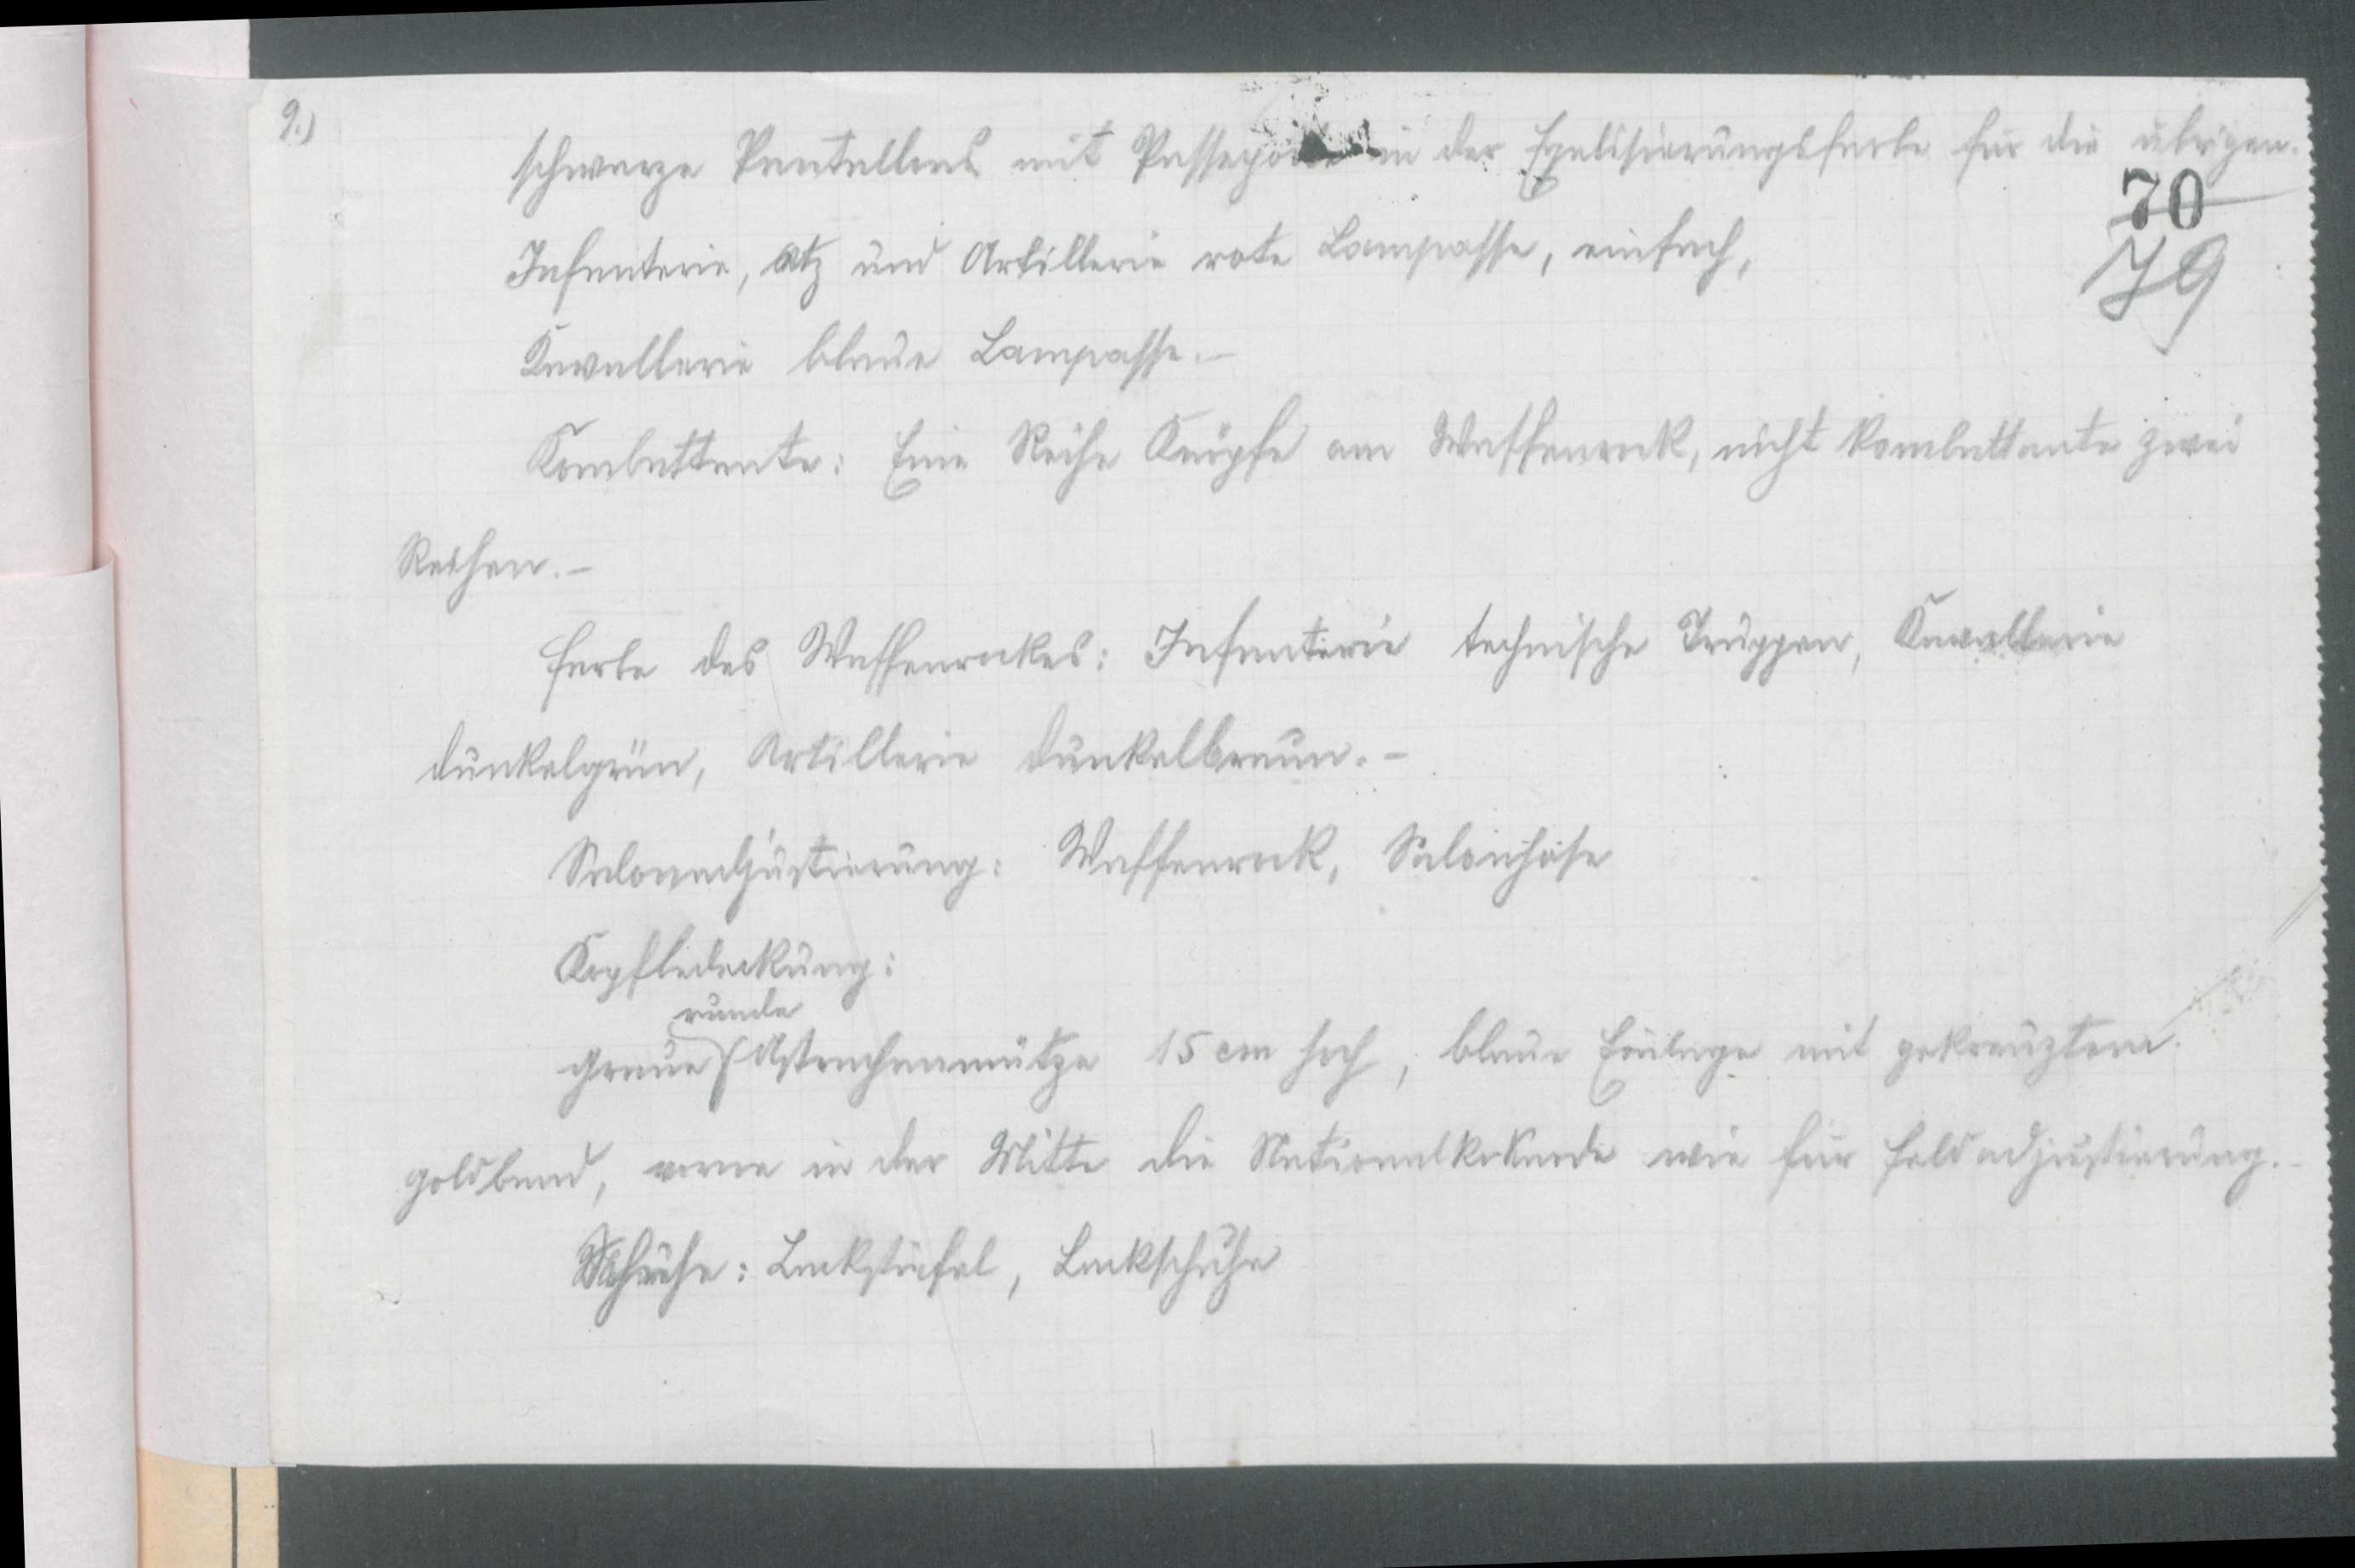 9.)
schwarze Pantallons mit Passepoile in der Egalisierungsfarbe für die übrigen.
70
79
Infanterie, und Artillerie rote Lampasse, einfach,
Kavallerie blaue Lampasse.-
Kombattante: Eine Reihe Knöpfe am Waffenrock, nicht Kombattante zwei
Reihen.-
Farbe des Waffenrockes: Infanterie technische Truppen, Kavallerie
dunkelgrün, Artillerie dunkelbraun.-
Salonadjustierung: Waffenrock, Salonhose
Kopfbedeckung:
runde
Graue Astrachanmütze 15 cm hoch, blaue Einlage mit gekreuztem
Goldband, vorne in der Mitte die Nationalkokarde wie für Feldadjustierung.-
Schuhe: Lackstiefel, Lackschuhe